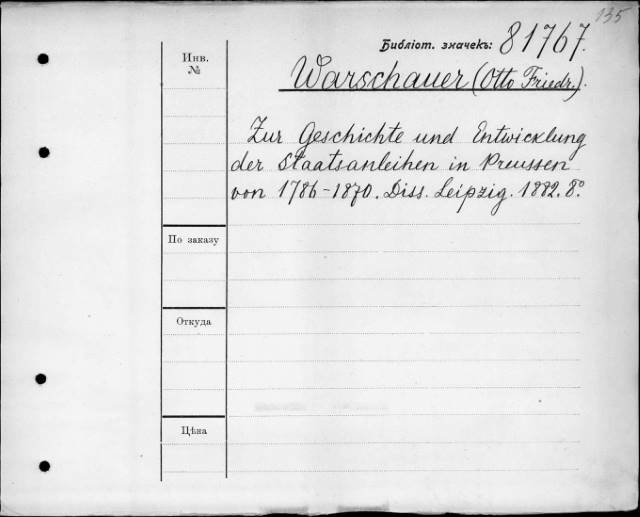 135
Библіот. значекъ: 81767.
Инв.
№
Warschauer (Otto Friedr.).
Zur Geschichte und Entwicklung
der Staatsanleihen in Preussen
von 1786-1870. Diss. Leipzig. 1882. 8º
По заказу
Откуда
Цѣна